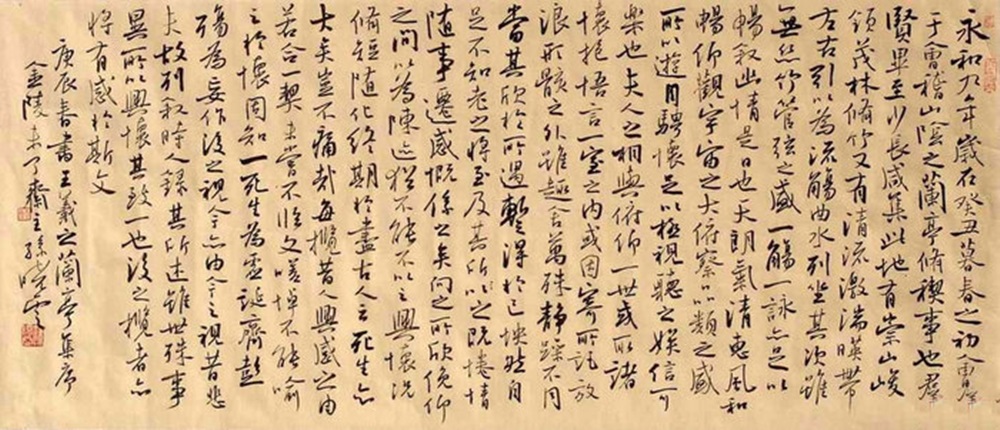 永和九年歲在癸丑暮春之初會
于會稽山陰之蘭亭脩禊事也羣
賢畢至少長咸集此地有崇山峻
領茂林脩竹又有清流激湍暎帶
左右引以為流觴曲水列坐其次雖
無絲竹管弦之盛一觴一詠亦足以
暢叙幽情是日也天朗氣清惠風和
暢仰觀宇宙之大俯察品類之盛
所以遊目騁懷足以極視聽之娛信可
樂也夫人之相與俯仰一世或取諸
懷抱悟言一室之内或因寄所託放
浪形骸之外雖趣舍萬殊静躁不同
當其欣於所遇暫得於己怏然自
足不知老之將至及其所之既惓情
隨事遷感慨係之矣向之所欣俛仰
之間以為陳迹猶不能不以之興懷況
脩短隨化終期於盡古人云死生亦
大矣豈不痛哉每攬昔人興感之由
若合一契未嘗不臨文嗟悼不能喻
之於懷固知一死生為虛誕齊彭
殤為妄作後之視今亦由今之視昔悲
夫故列叙時人錄其所述雖世殊事
異所以興懷其致一也後之攬者亦
將有感於斯文
庚辰春書王羲之蘭亭集序
金陵未了齋主孫曉雲